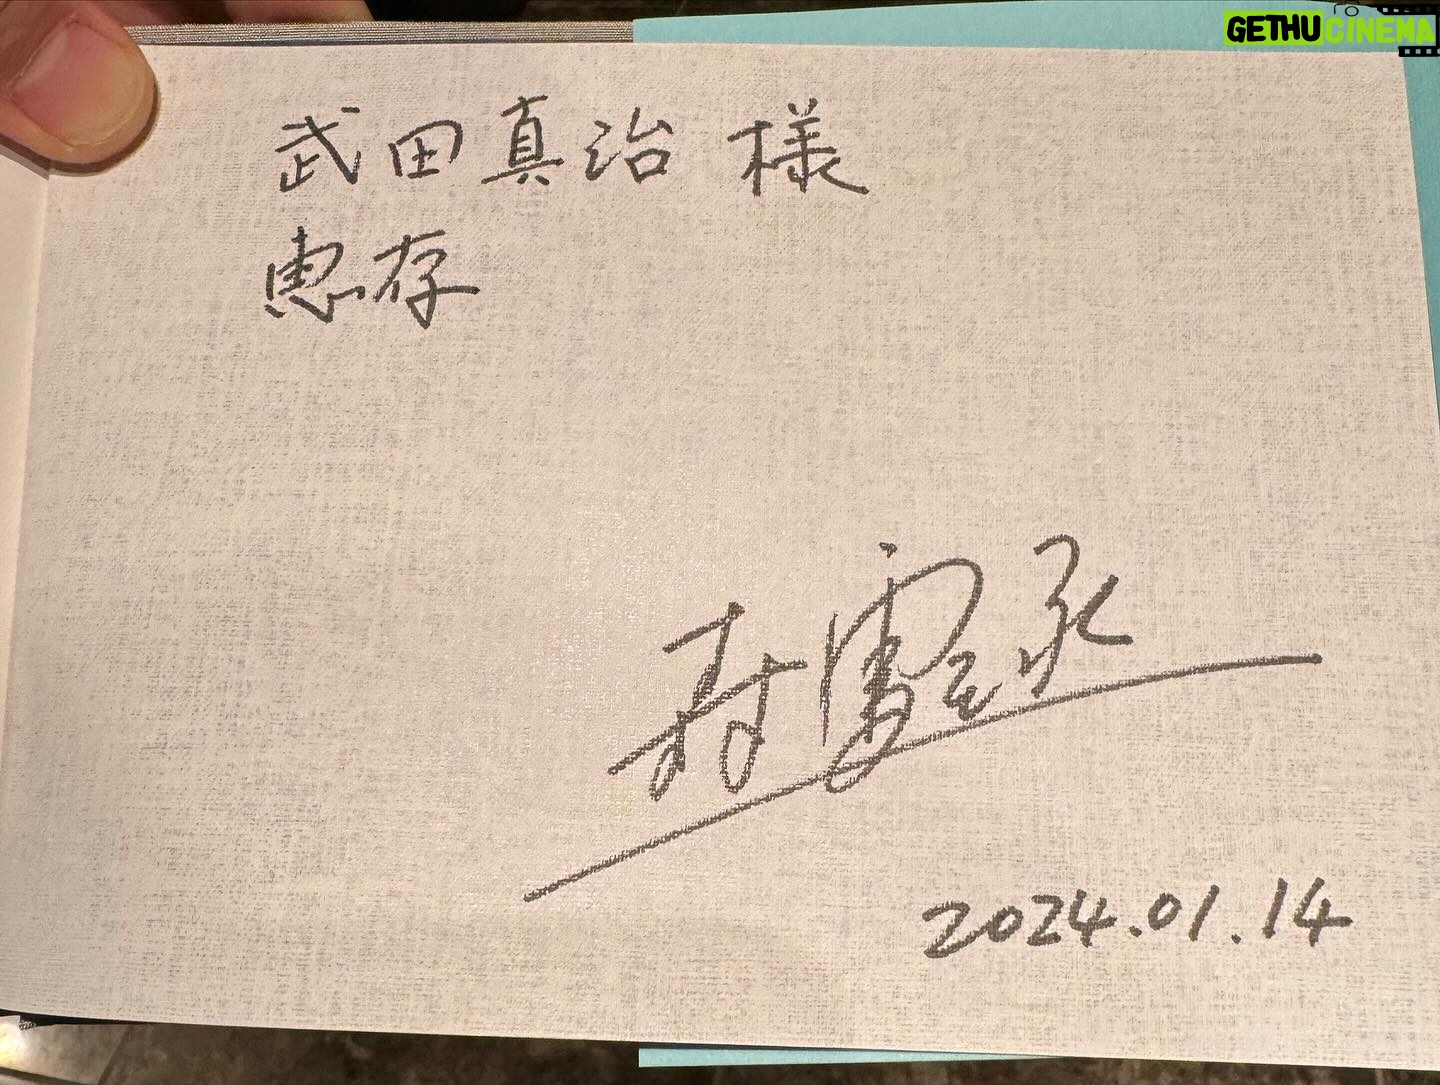 GETHUCINEMA
武田真治 様
恵存
2024.01.14